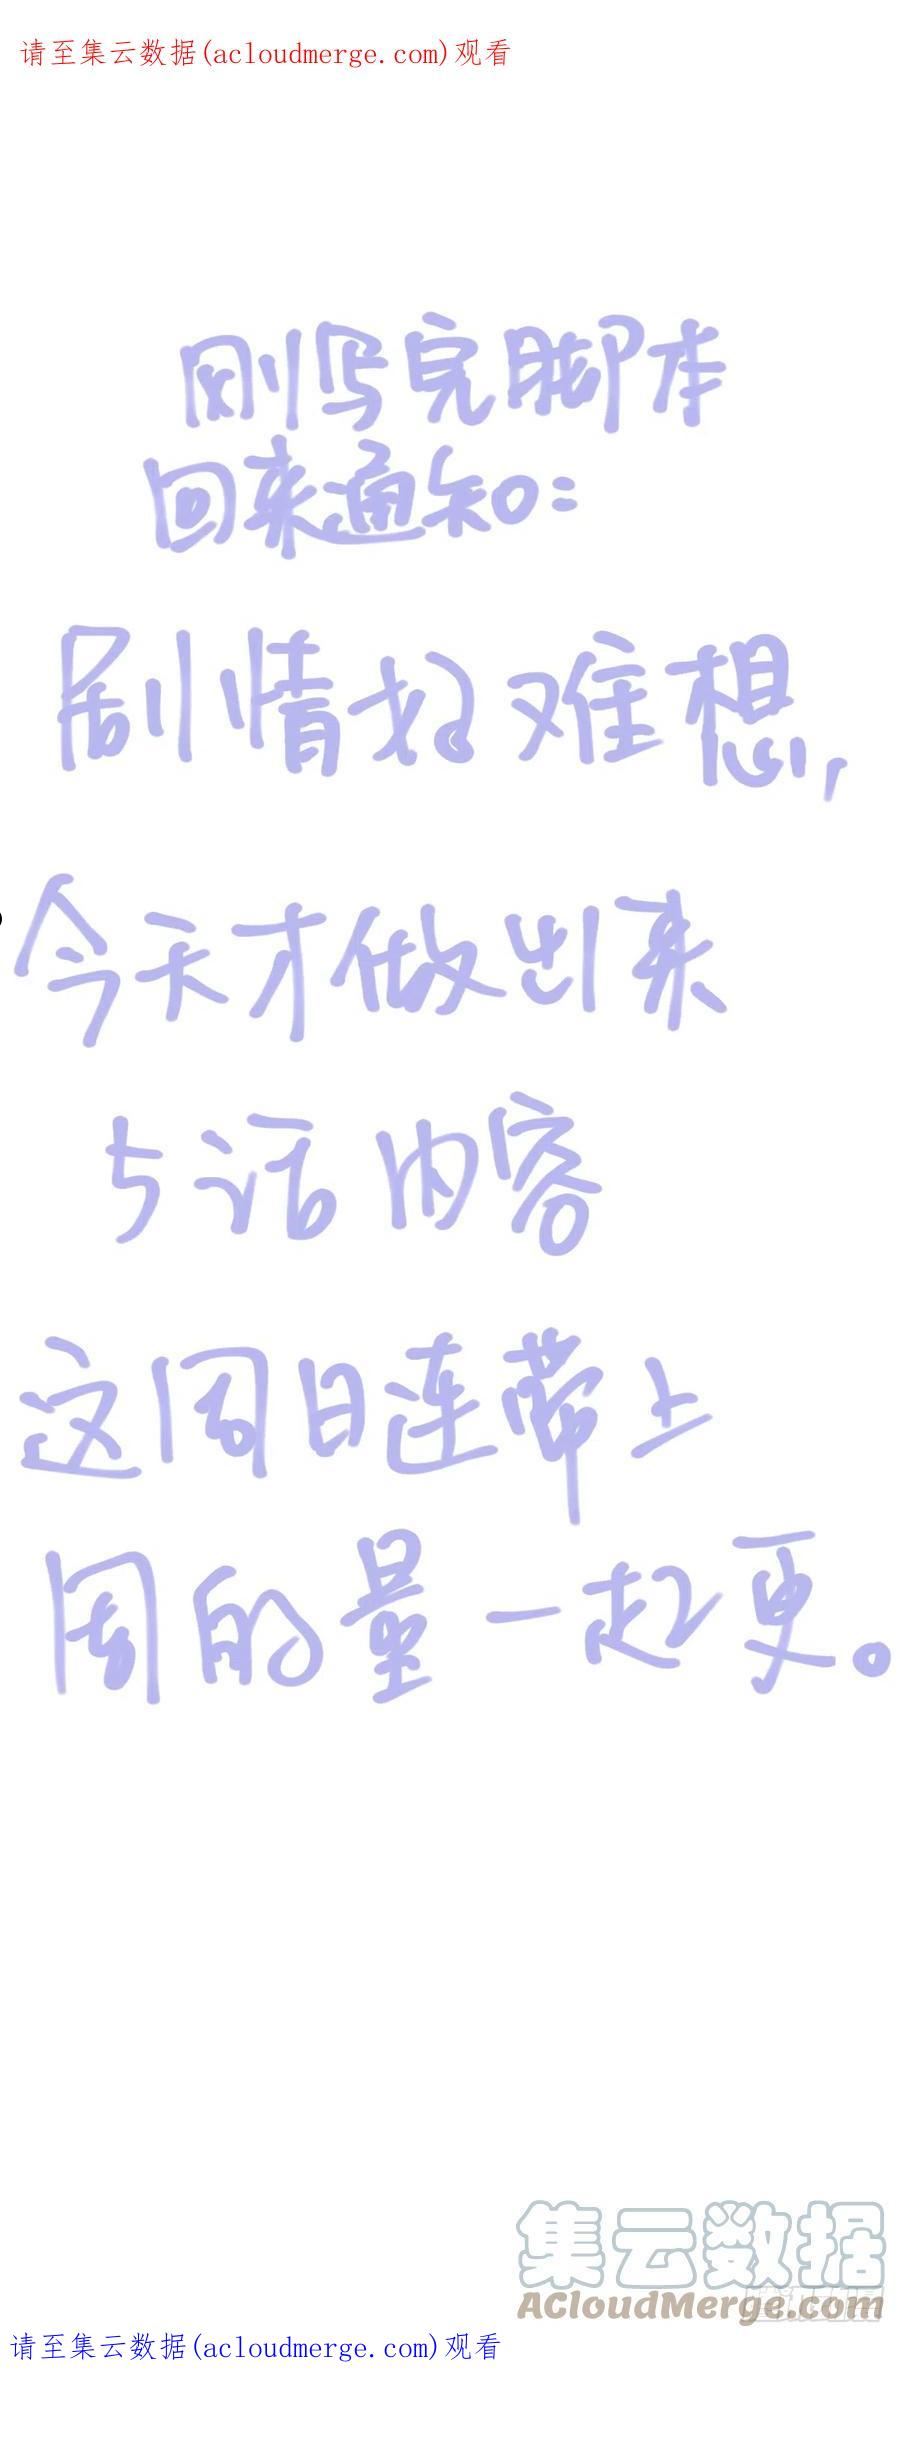 请至集云数据(acloudmerge.com)观看
刚写完脚本
回来通知:
剧情好难想,
今天才做出来
5话内容
这周日连带上
周的量一起更。
集云数据
ACloudMerge.com
请至集云数据(acloudmerge.com)观看